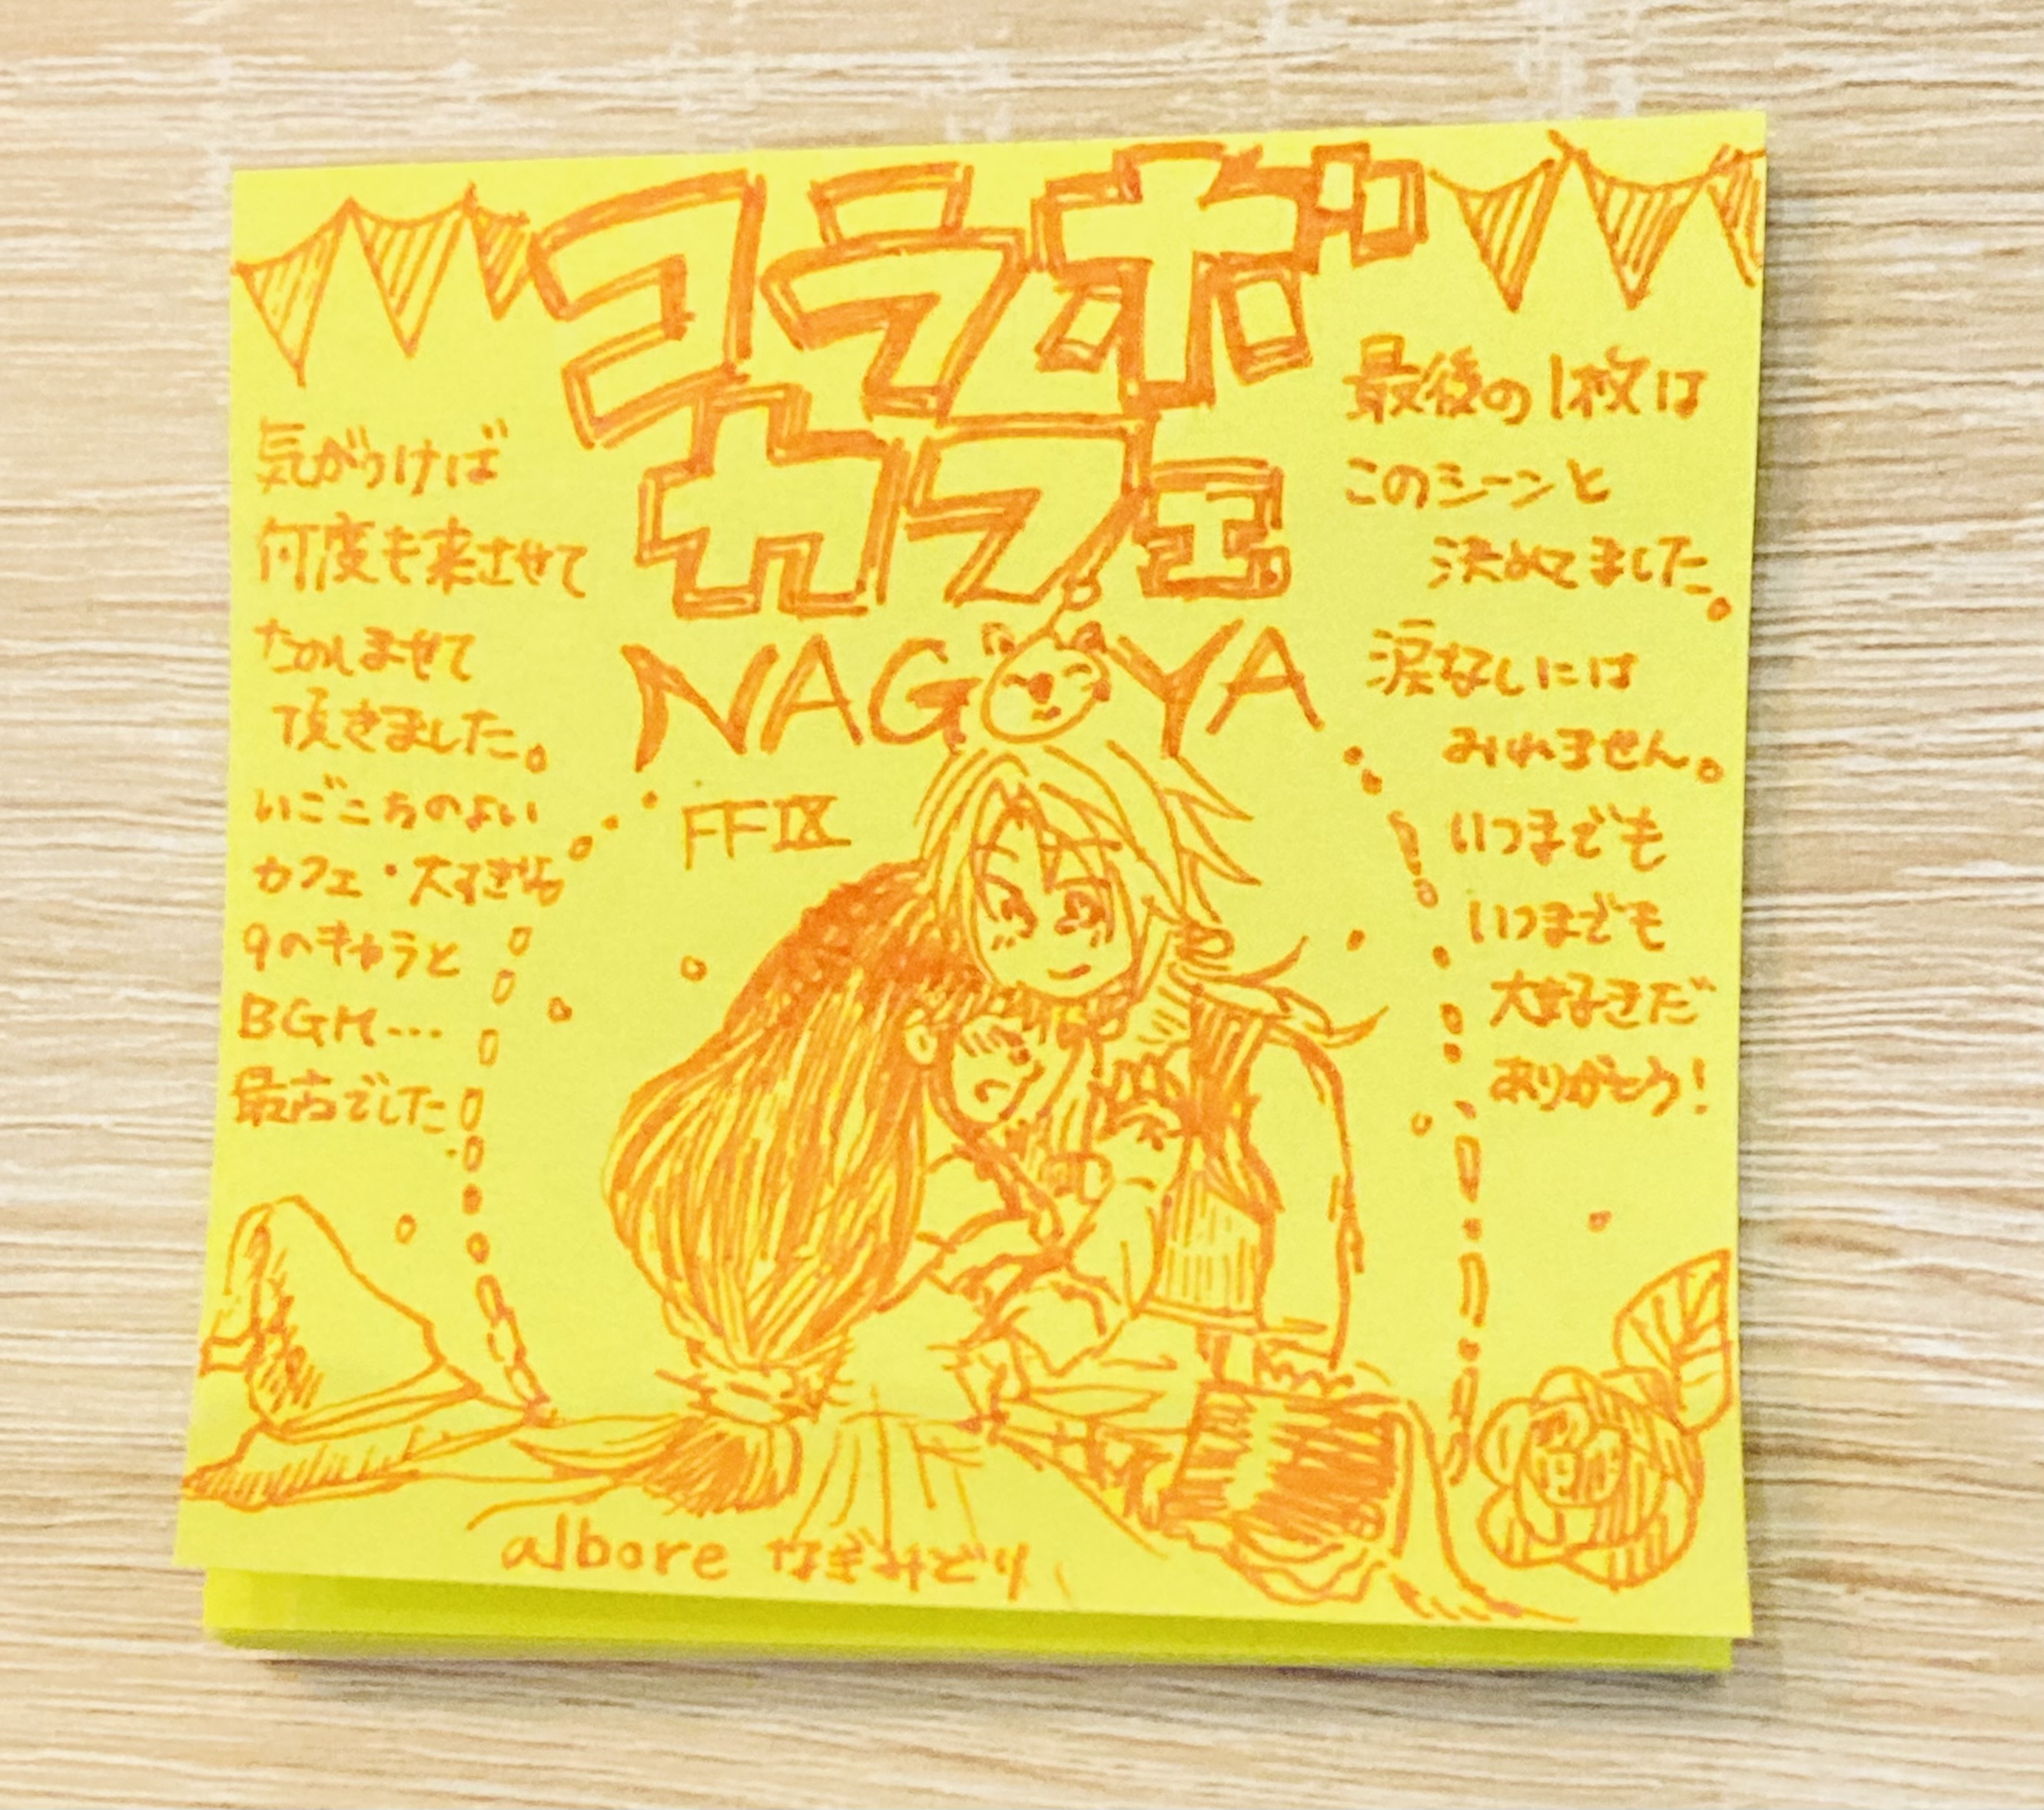 コラボ
カフェ
NAGOYA
FFIX
気がつけば
何度も来させて
たのしませて
頂きました。
いごこちのよい
カフェ・大すきな
9のキャラと
BGM…
最高でした
最後の1枚は
このシーンと
決めてました。
涙なしには
みれません。
いつまでも
いつまでも
大好きだ
ありがとう!
albore なぎみどり